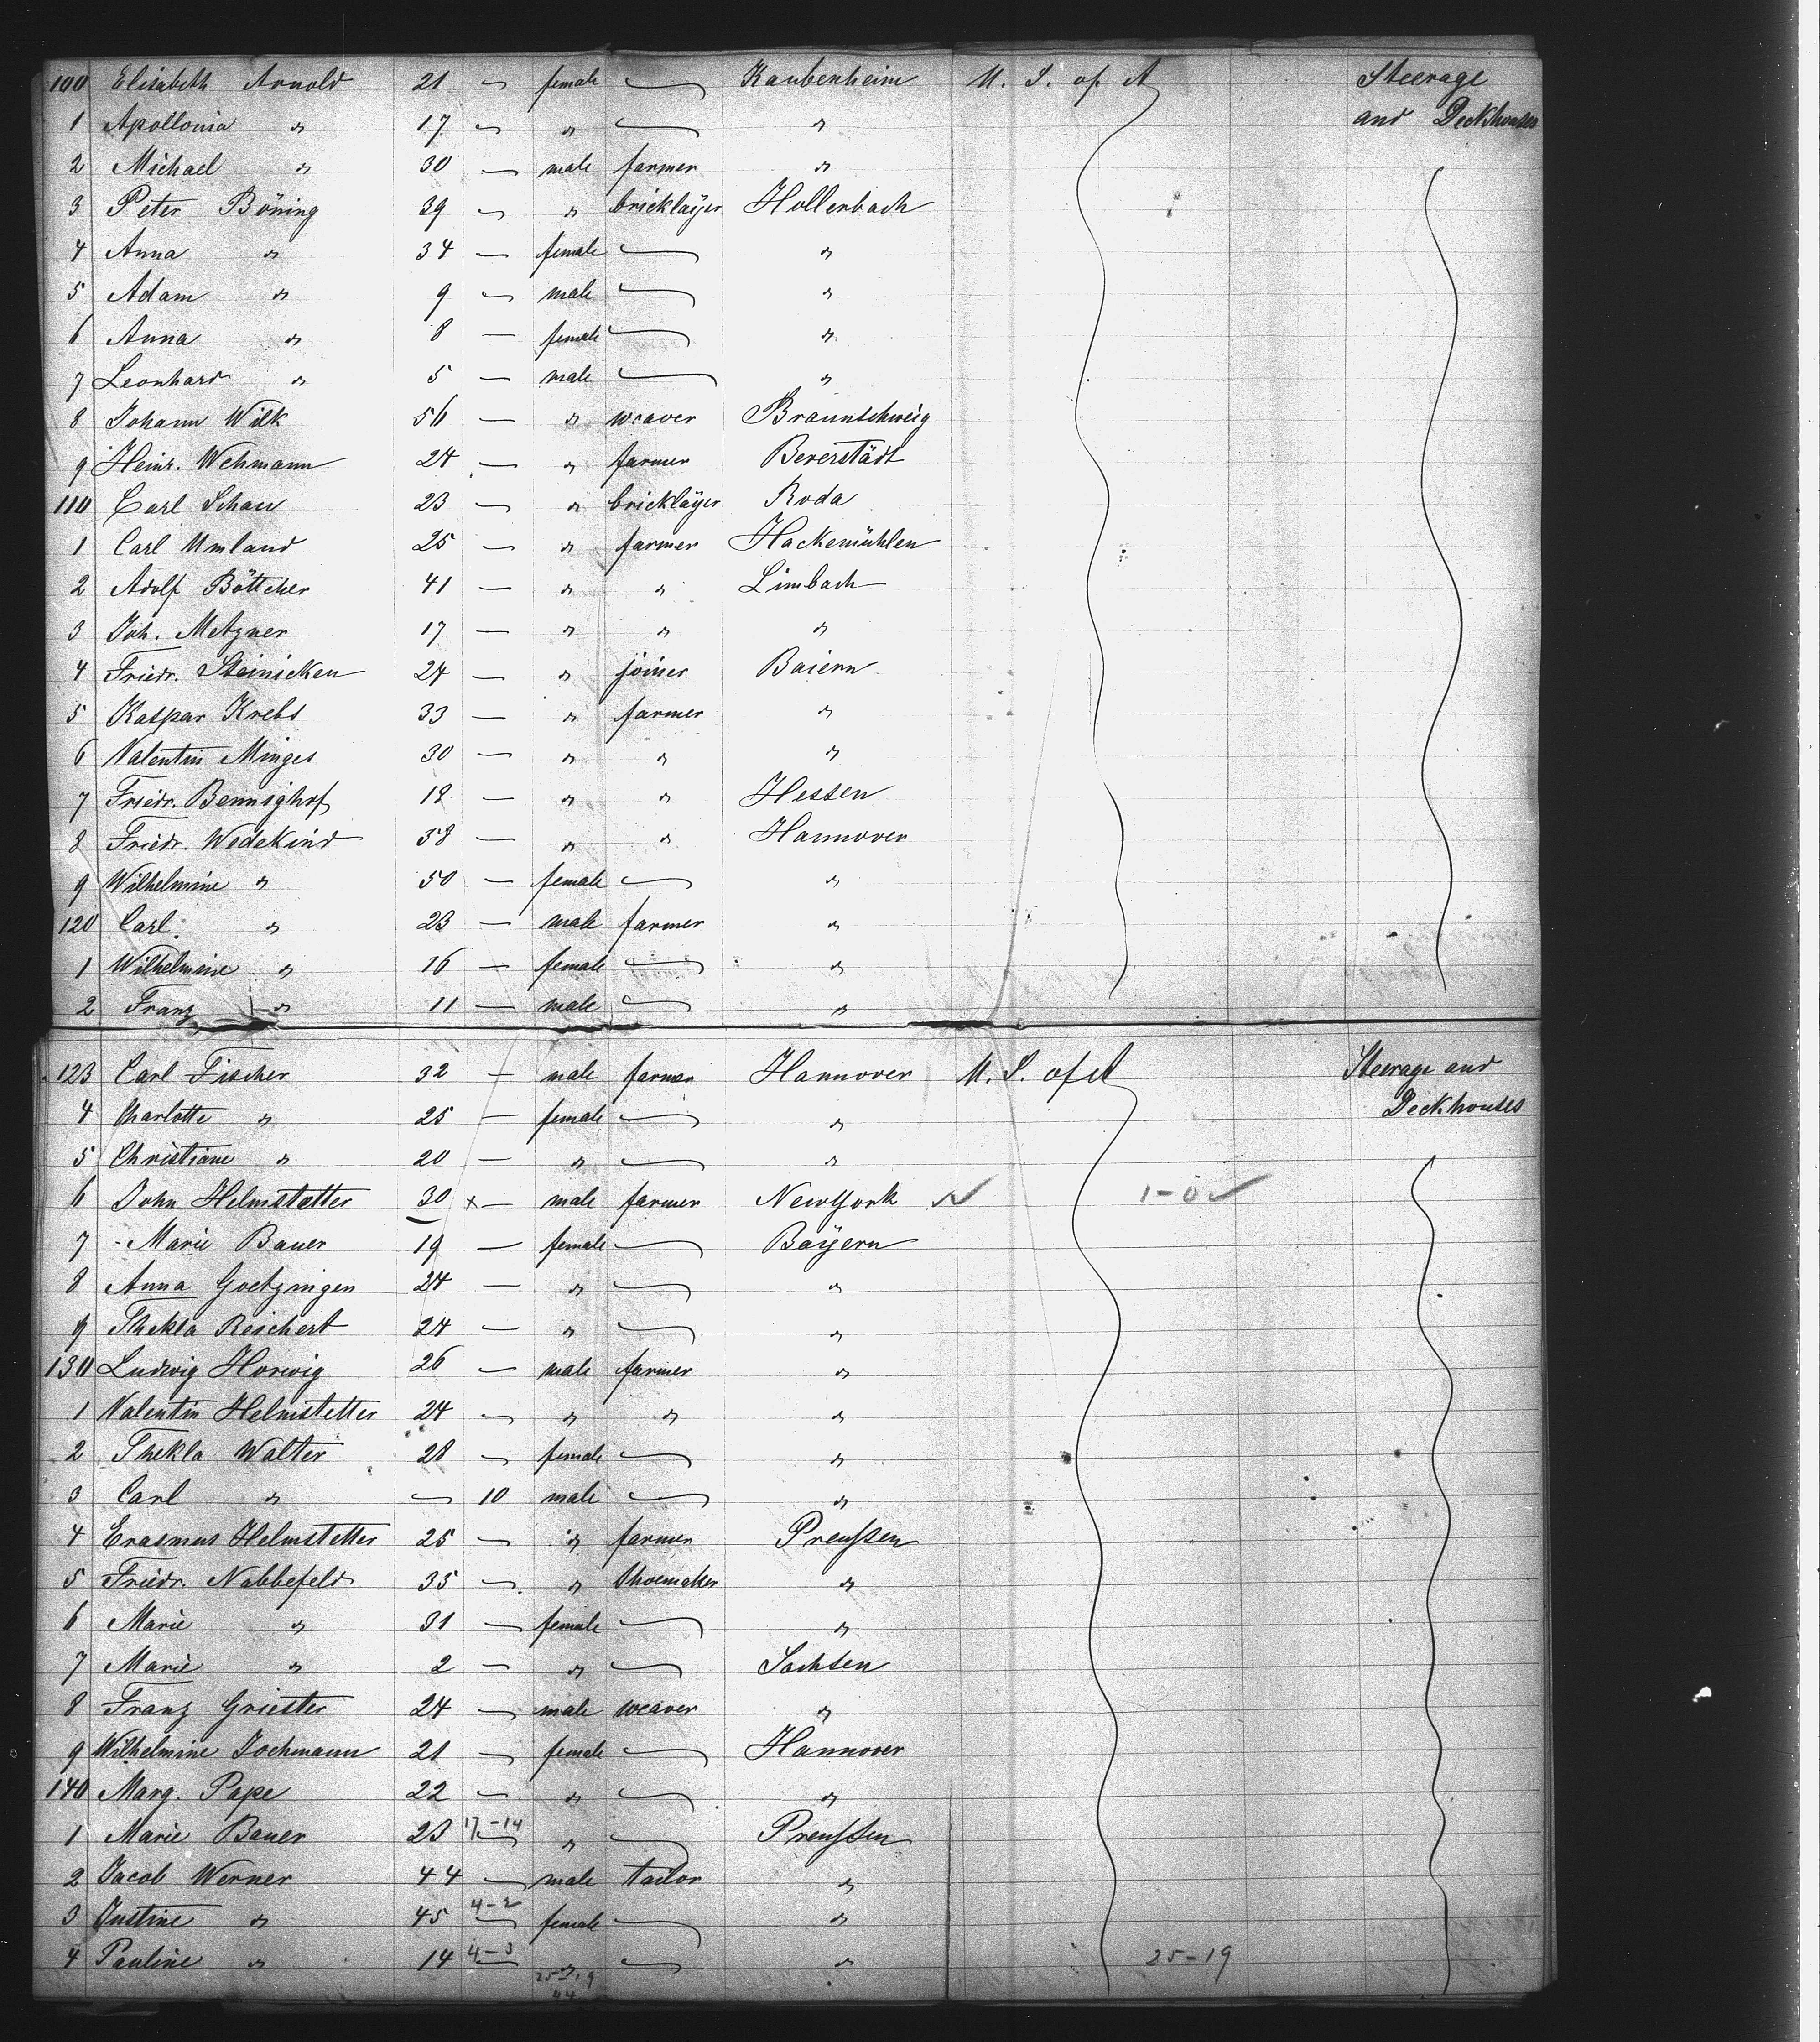 100 Elisabeth Arnold 21 — female — Kaubenheim U. S. of A Steerage
1 Apollonia " 17 — " — " and Deckhouses
2 Michael " 30 — male farmer "
3 Peter Böning 39 — " bricklayer Hollenbach
4 Anna " 34 — female — "
5 Adam " 9 — male — "
6 Anna " 8 — female — "
7 Leonhard " 5 — male — "
8 Johann Wilk 56 — " weaver Braunschweig
9 Heinr. Wehmann 24 — " farmer Beverstädt
110 Carl Schau 23 — " bricklayer Roda
1 Carl Umland 25 — " farmer Hackemühlen
2 Adolf Böttcher 41 — " " Limbach
3 Joh. Metzner 17 — " " "
4 Friedr. Steinicken 24 — " joiner Baiern
5 Kaspar Krebs 33 — " farmer "
6 Valentin Minges 30 — " " "
7 Friedr. Bennighof 18 — " " Hessen
8 Friedr. Wedekind 58 — " " Hannover
9 Wilhelmine " 50 — female — "
120 Carl " 23 — male farmer "
1 Wilhelmine " 16 — female — "
2 Franz " 11 — male — "
123 Carl Fischer 32 — male farmer Hannover U. S. of A Steerage and
4 Charlotte " 25 — female — " Deckhouses
5 Christiane " 20 — " — "
6 John Helmstetter 30 x — male farmer NewYork ✓ 1-0 ✓
7 Marie Bauer 19 — female — Bayern
8 Anna Goetzingen 24 — " — "
9 Thekla Reichert 24 — " — "
130 Ludwig Horwig 26 — male farmer "
1 Valentin Helmstetter 24 — " " "
2 Thekla Walter 28 — female — "
3 Carl " — 10 male — "
4 Erasmus Helmstetter 25 — " farmer Preußen
5 Friedr. Nabbefeld 35 — " shoemaker "
6 Marie " 31 — female — "
7 Marie " 2 — " — Sachsen
8 Franz Griester 24 — male weaver "
9 Wilhelmine Jochmann 21 — female — Hannover
140 Marg. Pape 22 — " — "
1 Marie Bauer 23 17-14 — " — Preußen
2 Jacob Werner 44 — male tailor "
3 Justine " 45 4-2 — female — "
4 Pauline " 14 4-3 — " — " 25-19
25-19
44